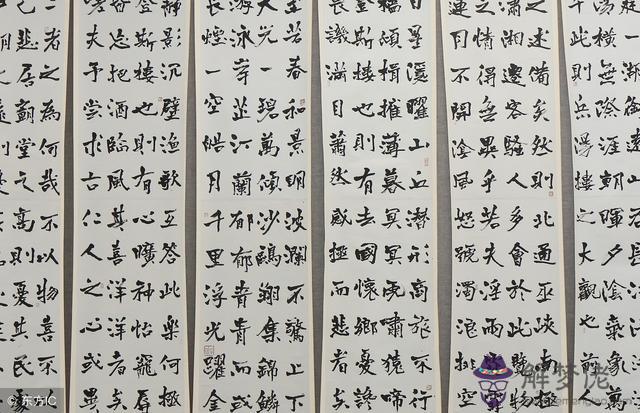 橫無際涯朝暉夕陰氣象萬
千此則岳陽樓之大觀也前
之述備矣然則北通巫峽南極
瀟湘遷客騷人多會於此覽物
之情得無異乎若夫淫雨
連月不開陰風怒號濁浪排空
星隱曜山丘潛形商旅不行
檣傾楫摧薄暮冥冥虎嘯猿啼
登斯樓也則有去國懷鄉憂讒
畏譏滿目蕭然感極而悲者矣
至若春和景明波瀾不驚上下
天光一碧萬頃沙鷗翔集錦鱗
游泳岸芷汀蘭郁郁青青而或
長煙一空皓月千里浮光躍金
靜影沉璧漁歌互答此樂何極
登斯樓也則有心曠神怡寵辱
皆忘把酒臨風其喜洋洋者矣
夫予嘗求古仁人之心或異
二者之為何哉不以物喜不
己悲居廟堂之高則憂其民
东方IC
解梦佬